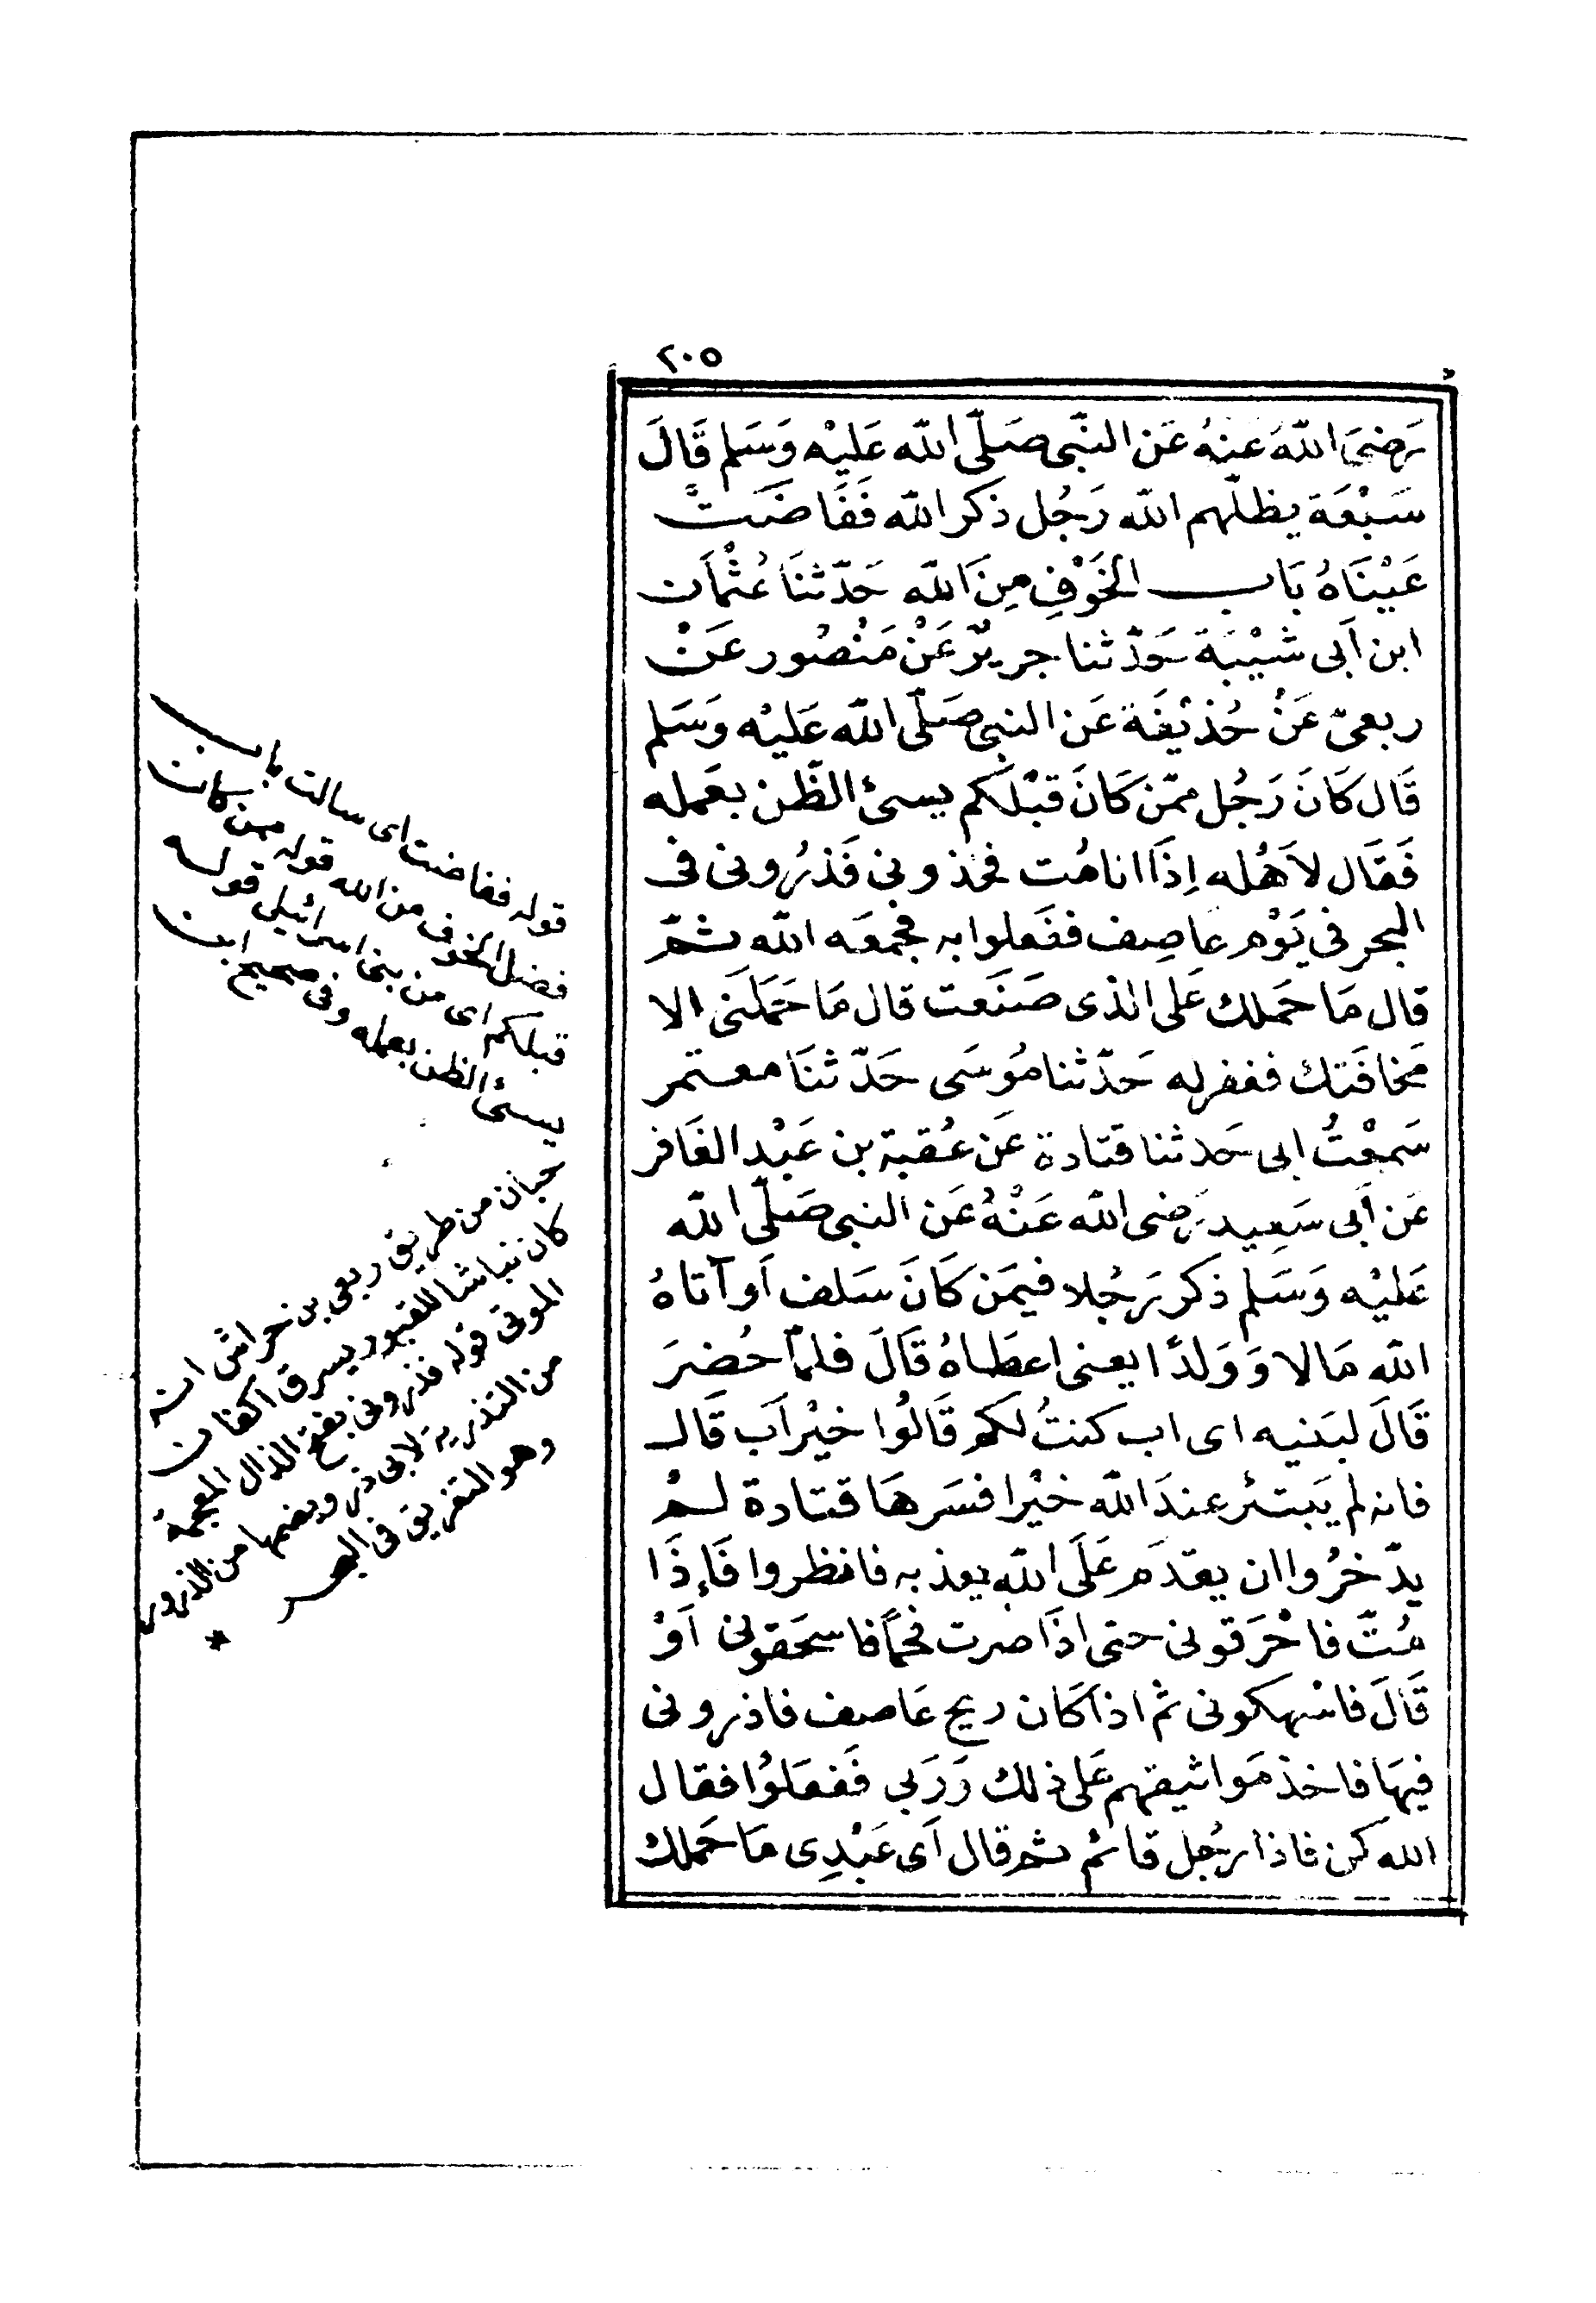 ٢٠٥
رَضِيَ اللّٰهُ عَنْهُ عَن النَّبي صَلَّى اللّٰه عَليْه وَسَلم قَالَ
سَبْعَة يظلّهم اللّٰه رَجُل ذكر اللّٰه فَفَاضَتْ
عَيْنَاهُ بَاب الخَوْفِ مِنَ اللّٰه حَدّثنَا عُثْمَان
ابن اَبى شَيْبَة حَدّثنا جريرٌ عَنْ مَنْصُور عَنْ
ربعىّ عَنْ حُذيْفَة عَن النبي صَلّى اللّٰه عَليْه وَسَلم
قَال كَانَ رَجُل ممّن كَانَ قبْلكم يسئ الظّن بعَمله
فَقَال لاَهْله اِذَا انا مُت فخذونى فَذرُونى فى
البحر فى يَوْم عَاصِف ففعَلوا به فجمعَه اللّٰه ثمّ
قال مَا حَملك عَلى الذى صَنَعت قال مَا حَمَلَنى الا
مَخافَتك فغفرله حَدّثنا مُوسَى حَدّثنَا معتمر
سَمِعْتُ ابى حَدثنا قتادة عَن عُقبة بن عَبْد الغَافر
عَن اَبى سَعِيد رَضى اللّٰه عَنْهُ عَن النبى صَلّى اللّٰه
عَليْه وَسَلم ذكر رَجُلا فيمَن كَانَ سَلف اَو آتَاهُ
اللّٰه مَالا وَ وَلدًا يعنى اعطَاهُ قَالَ فلمّا حُضِرَ
قَالَ لبَنيه اى اب كنتُ لكم قَالُوا خيْرَ اَب قَال
فانه لم يَبتئر عندَ اللّٰه خيْرا فسَرهَا قتادة لمْ
يدّخرُوا ان يقدَم عَلَى اللّٰه يعذبه فانظروا فَإِذَا
مُتّ فاحْرَقونى حتى اذَا صرت فحمًا فاسحَقونى اَوْ
قَالَ فاسْهكونى ثم اذا كَان ريح عَاصف فاذرونى
فيهَا فاخذ مَواثيقهم عَلى ذلك وَرَبي فَفعَلوُا فقال
اللّٰه كن فاذا رَجُل قائم ثم قال اَى عَبْدِى مَا حَملك
قوله ففاضت اى سالت باب
فضل الخوف من الله قوله ممن كان
قبلكم اى من بنى اسرائيل قوله
يسئ الظن بعمله وفى صحيح ابن
حبان من طريق ربعى بن حراش انه
كان نباشا للقبور يسرق اكفان
الموتى قوله فذرونى بفتح الذال المعجمة
من التذرية لابى ذر وبضمها من الذرور
وهو التفريق فى البحر